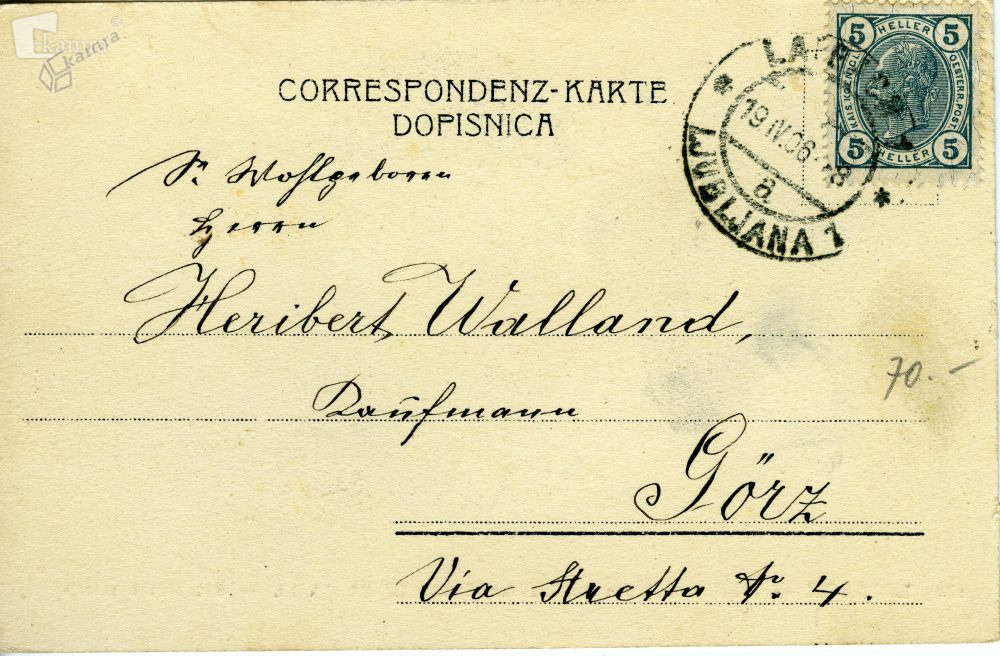 kamra
kamra
5 HELLER 5
KAIS. KOENIGL.
OESTERR. POST
5 HELLER 5
19 IV. 06
a
LJUBLJANA 1
CORRESPONDENZ-KARTE
DOPISNICA
Sr. Wohlgeboren
Herrn
Heribert Walland,
Kaufmann
70.-
Görz
Via Stretta Nr. 4.